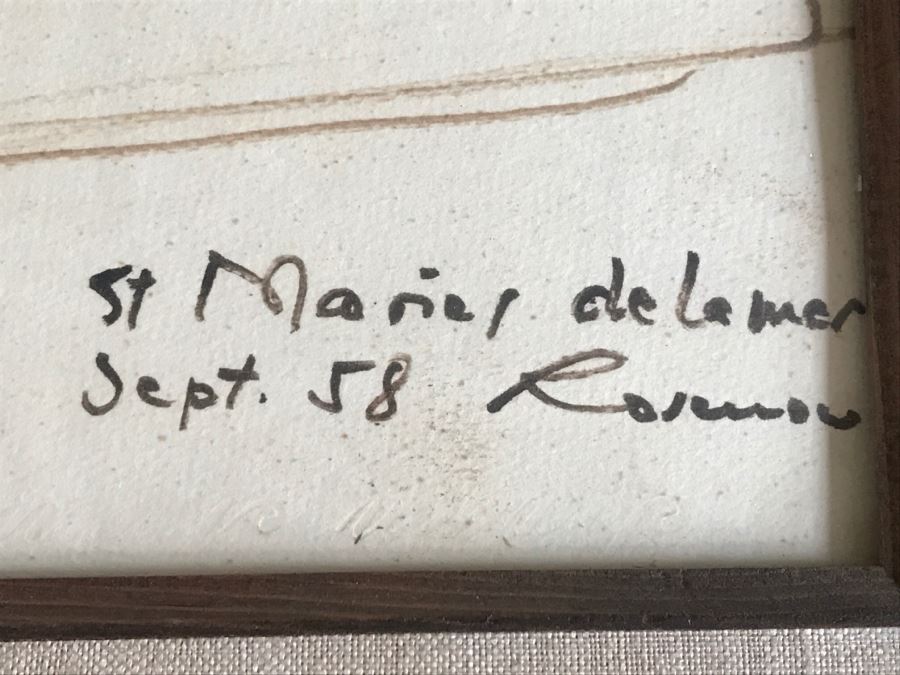 St Maries de la mer
Sept. 58 Rosenow